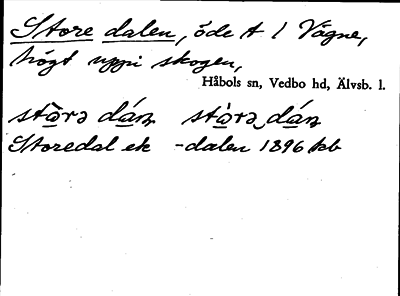 Store dalen, öde t 1 Vågne,
högt uppi skogen,
Håbols sn, Vedbo hd, Älvsb. l.
stò̱rə dá̱n̥ stò̱rə‿dá̱n̥
Storedal ek -dalen 1896 kb